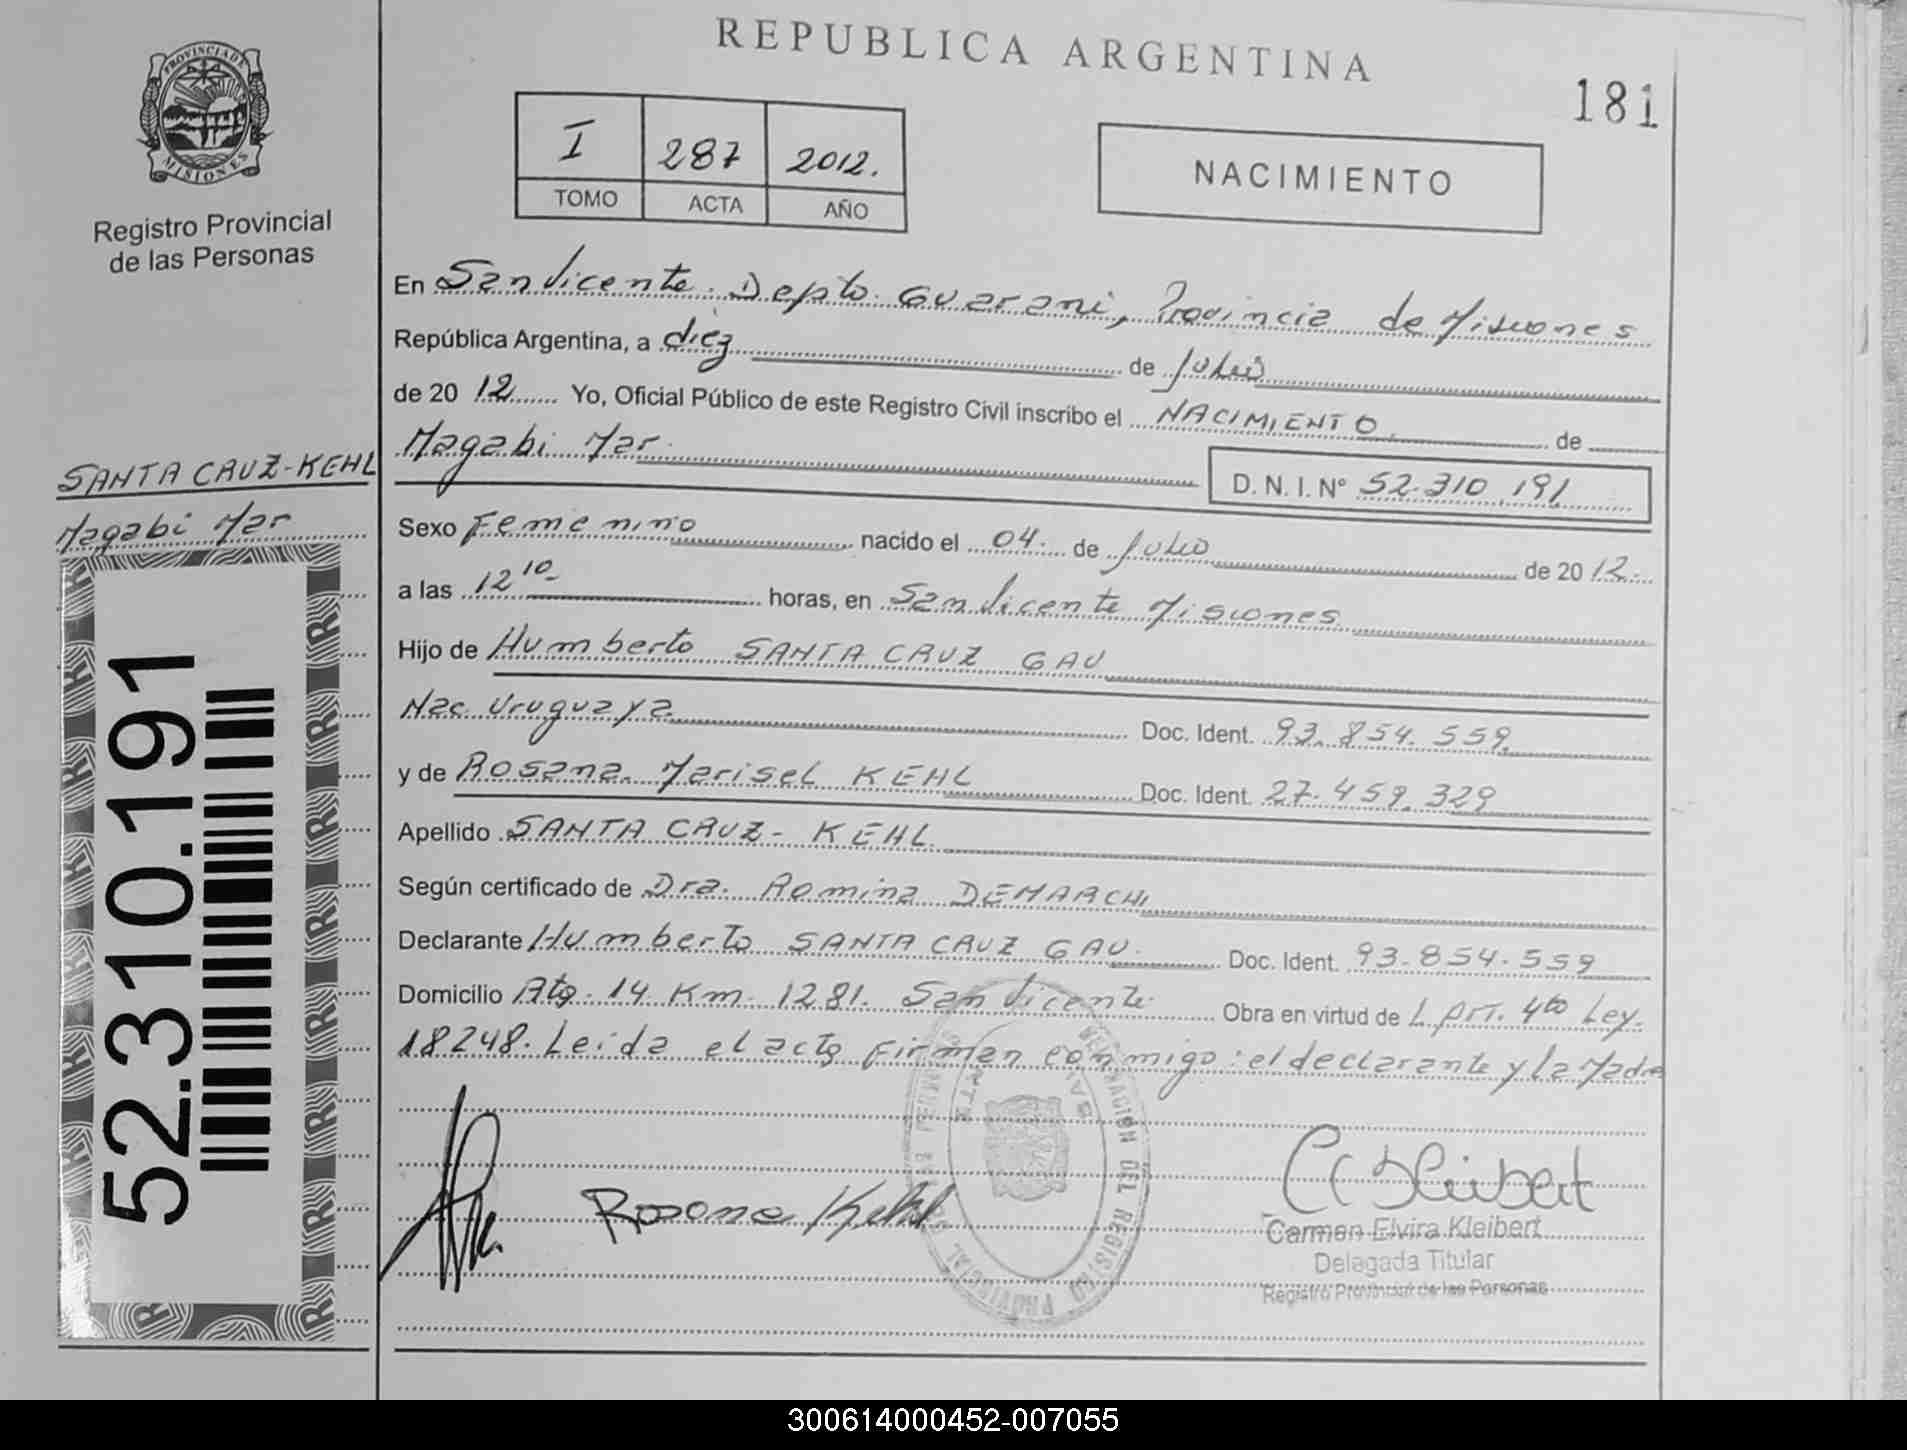 REPUBLICA ARGENTINA
181
PROVINCIA DE
MISIONES
Registro Provincial
de las Personas
I 287 2012.
TOMO ACTA AÑO
NACIMIENTO
En San Vicente. Depto. Guarani, Provincia de Misiones
República Argentina, a diez de Julio
de 20 12 Yo, Oficial Público de este Registro Civil inscribo el NACIMIENTO de
Magabi Mar
D. N. I. Nº 52.310.191
SANTA CRUZ-KEHL
Magabi Mar
Sexo Femenino nacido el 04. de Julio de 20 12.
a las 12 10 horas, en San Vicente Misiones
Hijo de Humberto SANTA CRUZ GAU
Nac. Uruguaya Doc. Ident. 93.854.559
y de Rosana Marisel KEHL Doc. Ident. 27.459.329
Apellido SANTA CRUZ - KEHL
Según certificado de Dra. Romina DEMARCHI
Declarante Humberto SANTA CRUZ GAU. Doc. Ident. 93.854.559
Domicilio Rta. 14 Km. 1281. San Vicente Obra en virtud de L. Art. 4to Ley.
18248. Leida el acta Firman conmigo: el declarante y la Madre
52.310.191
Rosana Kehl
CEKleibert
Carmen Elvira Kleibert
Delegada Titular
Registro Provincial de las Personas
DELEGACION DEL REGISTRO PROVINCIAL DE LAS PERSONAS
300614000452-007055